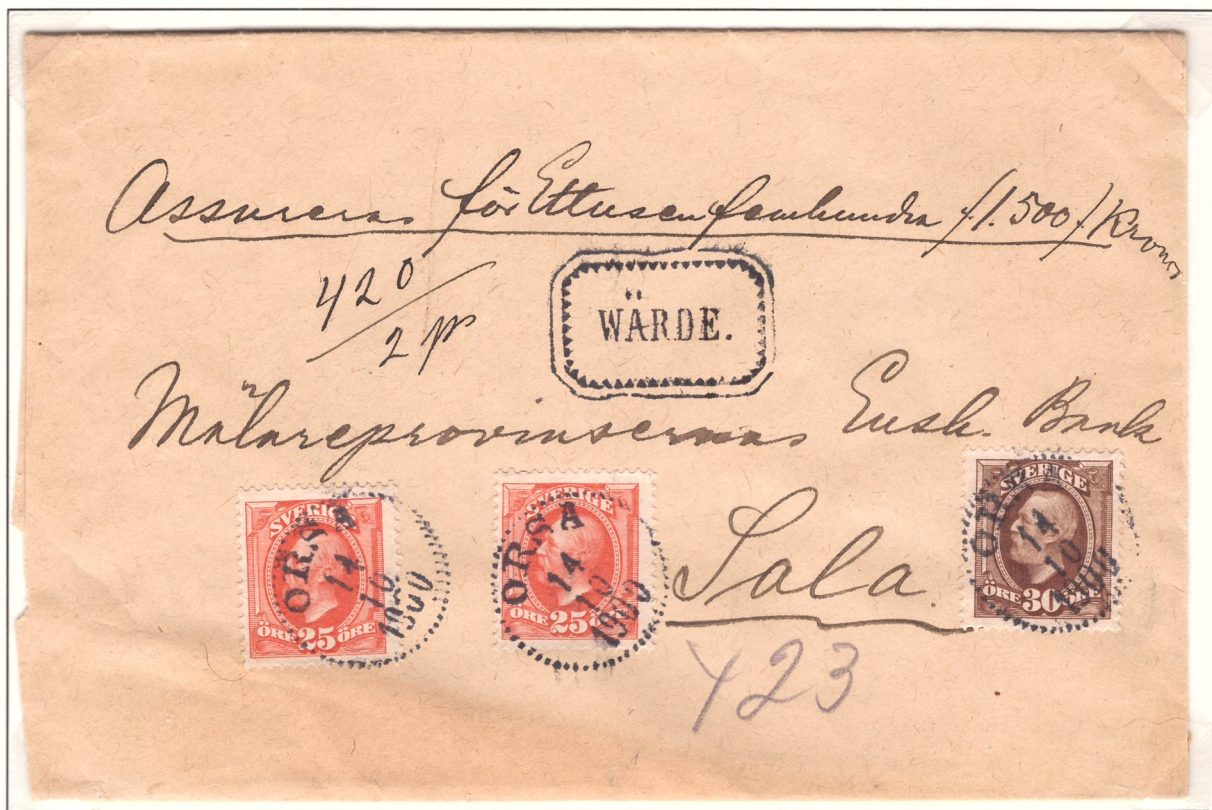 Assureras för Ettusen femhundra /1.500/ Kronor
420
2 p
WÄRDE.
Mälareprovinsernas Ensk. Bank
Sala.
SVERIGE
ÖRE 25 ÖRE
ORSA
14
10
1900
SVERIGE
ÖRE 25 ÖRE
ORSA
14
10
1900
SVERIGE
ÖRE 30 ÖRE
ORSA
14
10
1900
423